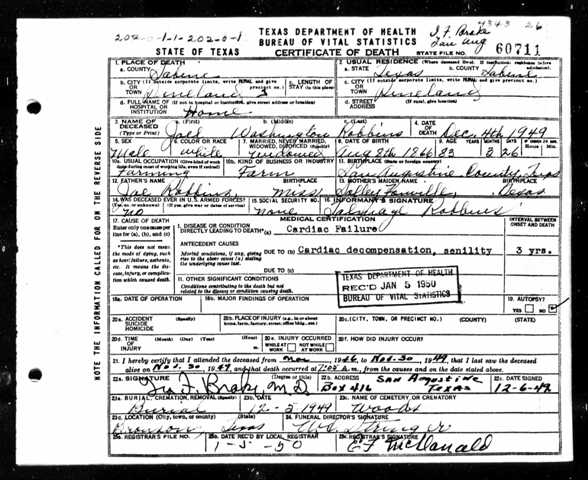 202-0-1-1-202-0-1
TEXAS DEPARTMENT OF HEALTH
BUREAU OF VITAL STATISTICS
STATE OF TEXAS
CERTIFICATE OF DEATH
STATE FILE NO. 60711
1. PLACE OF DEATH
2. USUAL RESIDENCE (Where deceased lived. If institution, residence before admission)
a. COUNTY Sabine
a. STATE Texas b. COUNTY Sabine
b. CITY (If outside corporate limits, write RURAL and give precinct no.) OR TOWN Pineland
c. LENGTH OF STAY (in this place)
c. CITY (If outside corporate limits, write RURAL and give precinct no.) OR TOWN Pineland
d. FULL NAME OF (If not in hospital or institution, give street address or location) HOSPITAL OR INSTITUTION Home
d. STREET ADDRESS (If rural, give location)
3. NAME OF DECEASED (Type or Print) a. (First) b. (Middle) Washington c. (Last) Robbins
4. DATE OF DEATH Dec. 4th 1949
5. SEX Male
6. COLOR OR RACE White
7. MARRIED, NEVER MARRIED, WIDOWED, DIVORCED (Specify) Widowed
8. DATE OF BIRTH Aug 8th 1866
9. AGE YEARS 83 MONTHS 3 DAYS 26
10a. USUAL OCCUPATION (Give kind of work done during most of working life, even if retired) Farming
10b. KIND OF BUSINESS OR INDUSTRY Farm
11. BIRTHPLACE San Augustine County, Texas
12. FATHER'S NAME Joe Robbins BIRTHPLACE Miss
13. MOTHER'S MAIDEN NAME Salley BIRTHPLACE Texas
14. WAS DECEASED EVER IN U.S. ARMED FORCES? (If yes, give war or dates of service) no
15. SOCIAL SECURITY NO. none
16. INFORMANT'S SIGNATURE Robbins
17. CAUSE OF DEATH
MEDICAL CERTIFICATION
INTERVAL BETWEEN ONSET AND DEATH
Enter only one cause per line for (a), (b), and (c)
I. DISEASE OR CONDITION DIRECTLY LEADING TO DEATH* (a) Cardiac Failure
*This does not mean the mode of dying, such as heart failure, asthenia, etc. It means the disease, injury, or complication which caused death.
ANTECEDENT CAUSES
Morbid conditions, if any, giving rise to the above cause (a) stating the underlying cause last.
DUE TO (b) Cardiac decompensation, senility 3 yrs.
DUE TO (c)
II. OTHER SIGNIFICANT CONDITIONS
Conditions contributing to the death but not related to the disease or condition causing death.
TEXAS DEPARTMENT OF HEALTH
REC'D JAN 5 1950
BUREAU OF VITAL STATISTICS
18a. DATE OF OPERATION
18b. MAJOR FINDINGS OF OPERATION
19. AUTOPSY? YES NO
20a. ACCIDENT SUICIDE HOMICIDE (Specify)
20b. PLACE OF INJURY (e.g., in or about home, farm, factory, street, office bldg., etc.)
20c. (CITY, TOWN, OR PRECINCT NO.) (COUNTY) (STATE)
20d. TIME OF INJURY (Month) (Day) (Year) (Hour)
20e. INJURY OCCURRED WHILE AT WORK NOT WHILE AT WORK
20f. HOW DID INJURY OCCUR?
21. I hereby certify that I attended the deceased from Nov 1946, to Nov. 30, 1949, that I last saw the deceased
alive on Nov. 30, 1949, and that death occurred at m., from the causes and on the date stated above.
22a. SIGNATURE (Degree or title) M.D.
22b. ADDRESS Box 416 San Augustine Texas
22c. DATE SIGNED 12-6-49
23a. BURIAL, CREMATION, REMOVAL (Specify) Burial
23b. DATE 12-5-1949
23c. NAME OF CEMETERY OR CREMATORY Woods
23d. LOCATION (City, town, or county) (State) Bronson, Texas
24. FUNERAL DIRECTOR'S SIGNATURE
25a. REGISTRAR'S FILE NO.
25b. DATE REC'D BY LOCAL REGISTRAR 1-5-50
25c. REGISTRAR'S SIGNATURE E F McDanald
NOTE THE INFORMATION CALLED FOR ON THE REVERSE SIDE